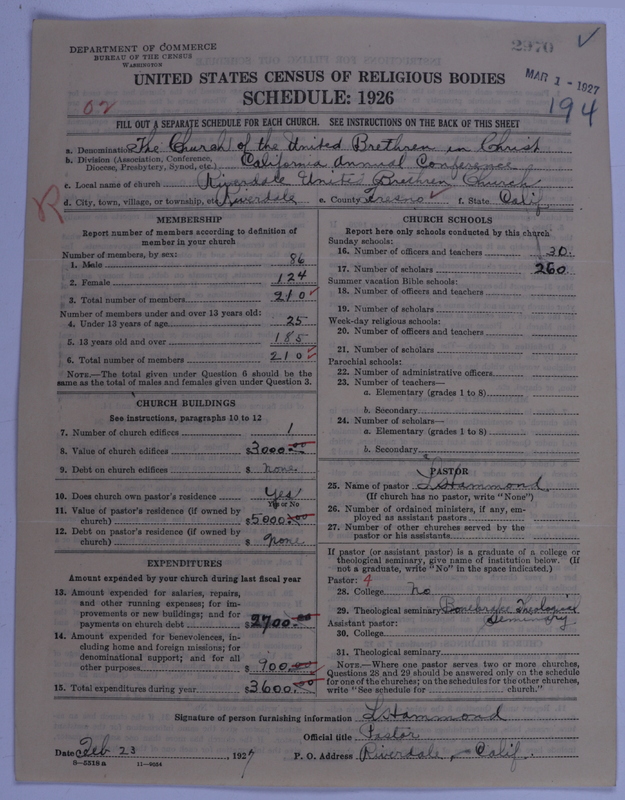 DEPARTMENT OF COMMERCE
BUREAU OF THE CENSUS
WASHINGTON
2970
MAR 1 - 1927
194
02
R
UNITED STATES CENSUS OF RELIGIOUS BODIES
SCHEDULE: 1926
FILL OUT A SEPARATE SCHEDULE FOR EACH CHURCH. SEE INSTRUCTIONS ON THE BACK OF THIS SHEET
a. Denomination The Church of the United Brethren in Christ
b. Division (Association, Conference,
Diocese, Presbytery, Synod, etc.) California Annual Conference
c. Local name of church Riverdale United Brethren Church
d. City, town, village, or township, etc. Riverdale e. County Fresno f. State Calif
MEMBERSHIP
Report number of members according to definition of
member in your church
Number of members, by sex:
1. Male 86
2. Female 124
3. Total number of members 210
Number of members under and over 13 years old:
4. Under 13 years of age 25
5. 13 years old and over 185
6. Total number of members 210
NOTE.—The total given under Question 6 should be the
same as the total of males and females given under Question 3.
CHURCH BUILDINGS
See instructions, paragraphs 10 to 12
7. Number of church edifices 1
8. Value of church edifices $3000.00
9. Debt on church edifices $ none
10. Does church own pastor's residence Yes
Yes or No
11. Value of pastor's residence (if owned by
church) $5000.00
12. Debt on pastor's residence (if owned by
church) $ none
EXPENDITURES
Amount expended by your church during last fiscal year
13. Amount expended for salaries, repairs,
and other running expenses; for im-
provements or new buildings; and for
payments on church debt $2700.00
14. Amount expended for benevolences, in-
cluding home and foreign missions; for
denominational support; and for all
other purposes $900.00
15. Total expenditures during year $3600.00
CHURCH SCHOOLS
Report here only schools conducted by this church
Sunday schools:
16. Number of officers and teachers 30
17. Number of scholars 260
Summer vacation Bible schools:
18. Number of officers and teachers
19. Number of scholars
Week-day religious schools:
20. Number of officers and teachers
21. Number of scholars
Parochial schools:
22. Number of administrative officers
23. Number of teachers—
a. Elementary (grades 1 to 8)
b. Secondary
24. Number of scholars—
a. Elementary (grades 1 to 8)
b. Secondary
PASTOR
25. Name of pastor L Hammond
(If church has no pastor, write "None")
26. Number of ordained ministers, if any, em-
ployed as assistant pastors
27. Number of other churches served by the
pastor or his assistants
If pastor (or assistant pastor) is a graduate of a college or
theological seminary, give name of institution below. (If
not a graduate, write "No" in the space indicated.)
Pastor: 4
28. College No
29. Theological seminary Bonebrake Theological
Seminary
Assistant pastor:
30. College
31. Theological seminary
NOTE.—Where one pastor serves two or more churches,
Questions 28 and 29 should be answered only on the schedule
for one of the churches; on the schedules for the other churches,
write "See schedule for church."
Signature of person furnishing information L Hammond
Official title Pastor
Date Feb 23, 1927 P. O. Address Riverdale, Calif.
8-5318 a 11-9034